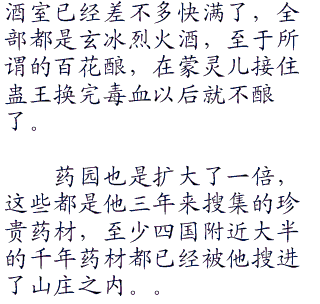 酒室已经差不多快满了，全
部都是玄冰烈火酒，至于所
谓的百花酿，在蒙灵儿接住
蛊王换完毒血以后就不酿
了。
药园也是扩大了一倍，
这些都是他三年来搜集的珍
贵药材，至少四国附近大半
的千年药材都已经被他搜进
了山庄之内。。